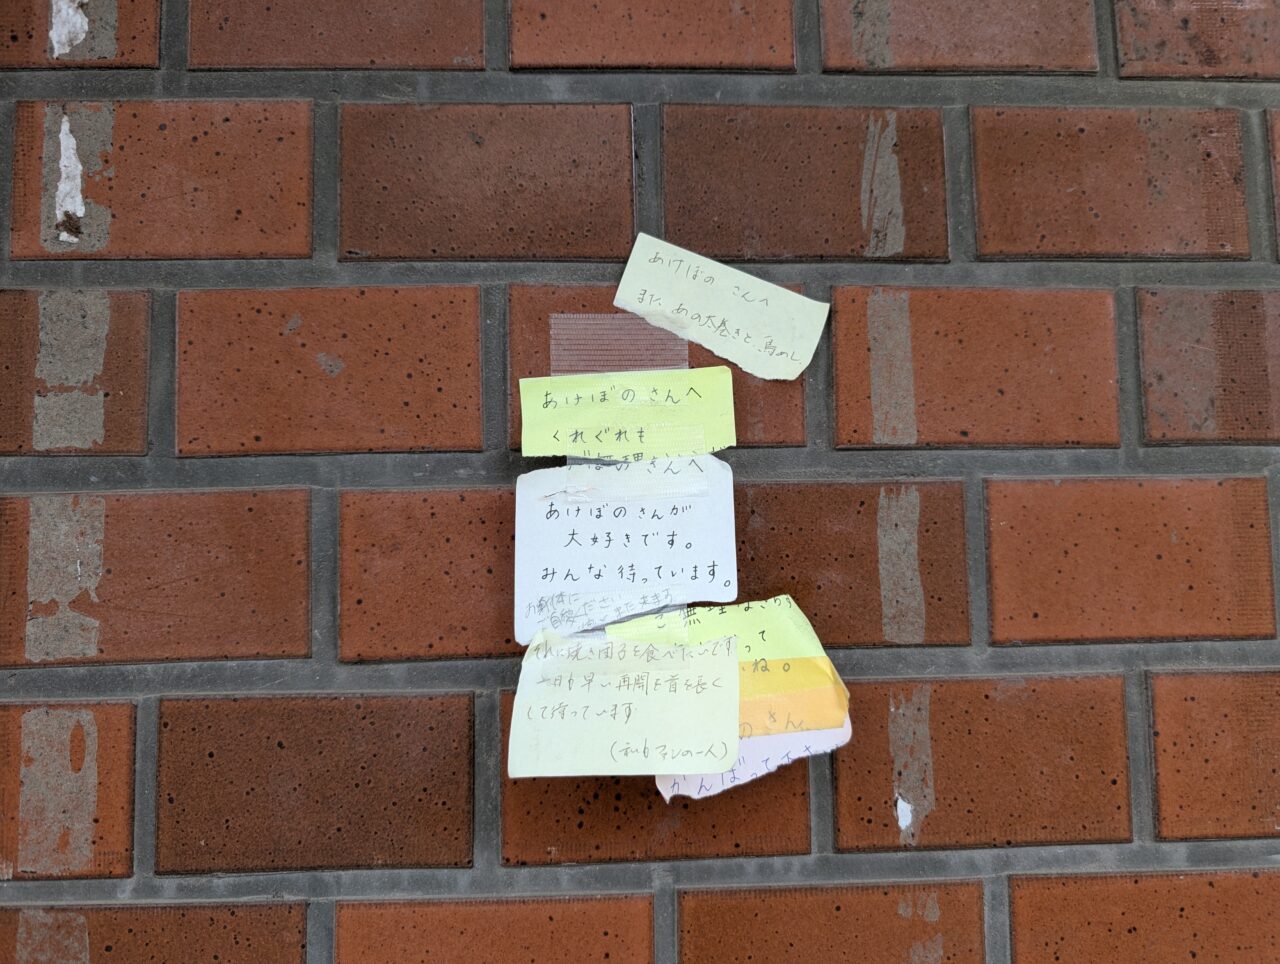 あけぼの さんへ
また、あの太巻きと、鳥めし、
あけぼの さんへ
くれぐれも
さんへ
あけぼのさんが
大好きです。
みんな待っています。
お身体に
ください
ご無理なさらず
って
ね。
それに焼き団子を食べたいです
一日も早い再開を首を長く
して待っています
(私もファンの一人)
のさん
がんばって